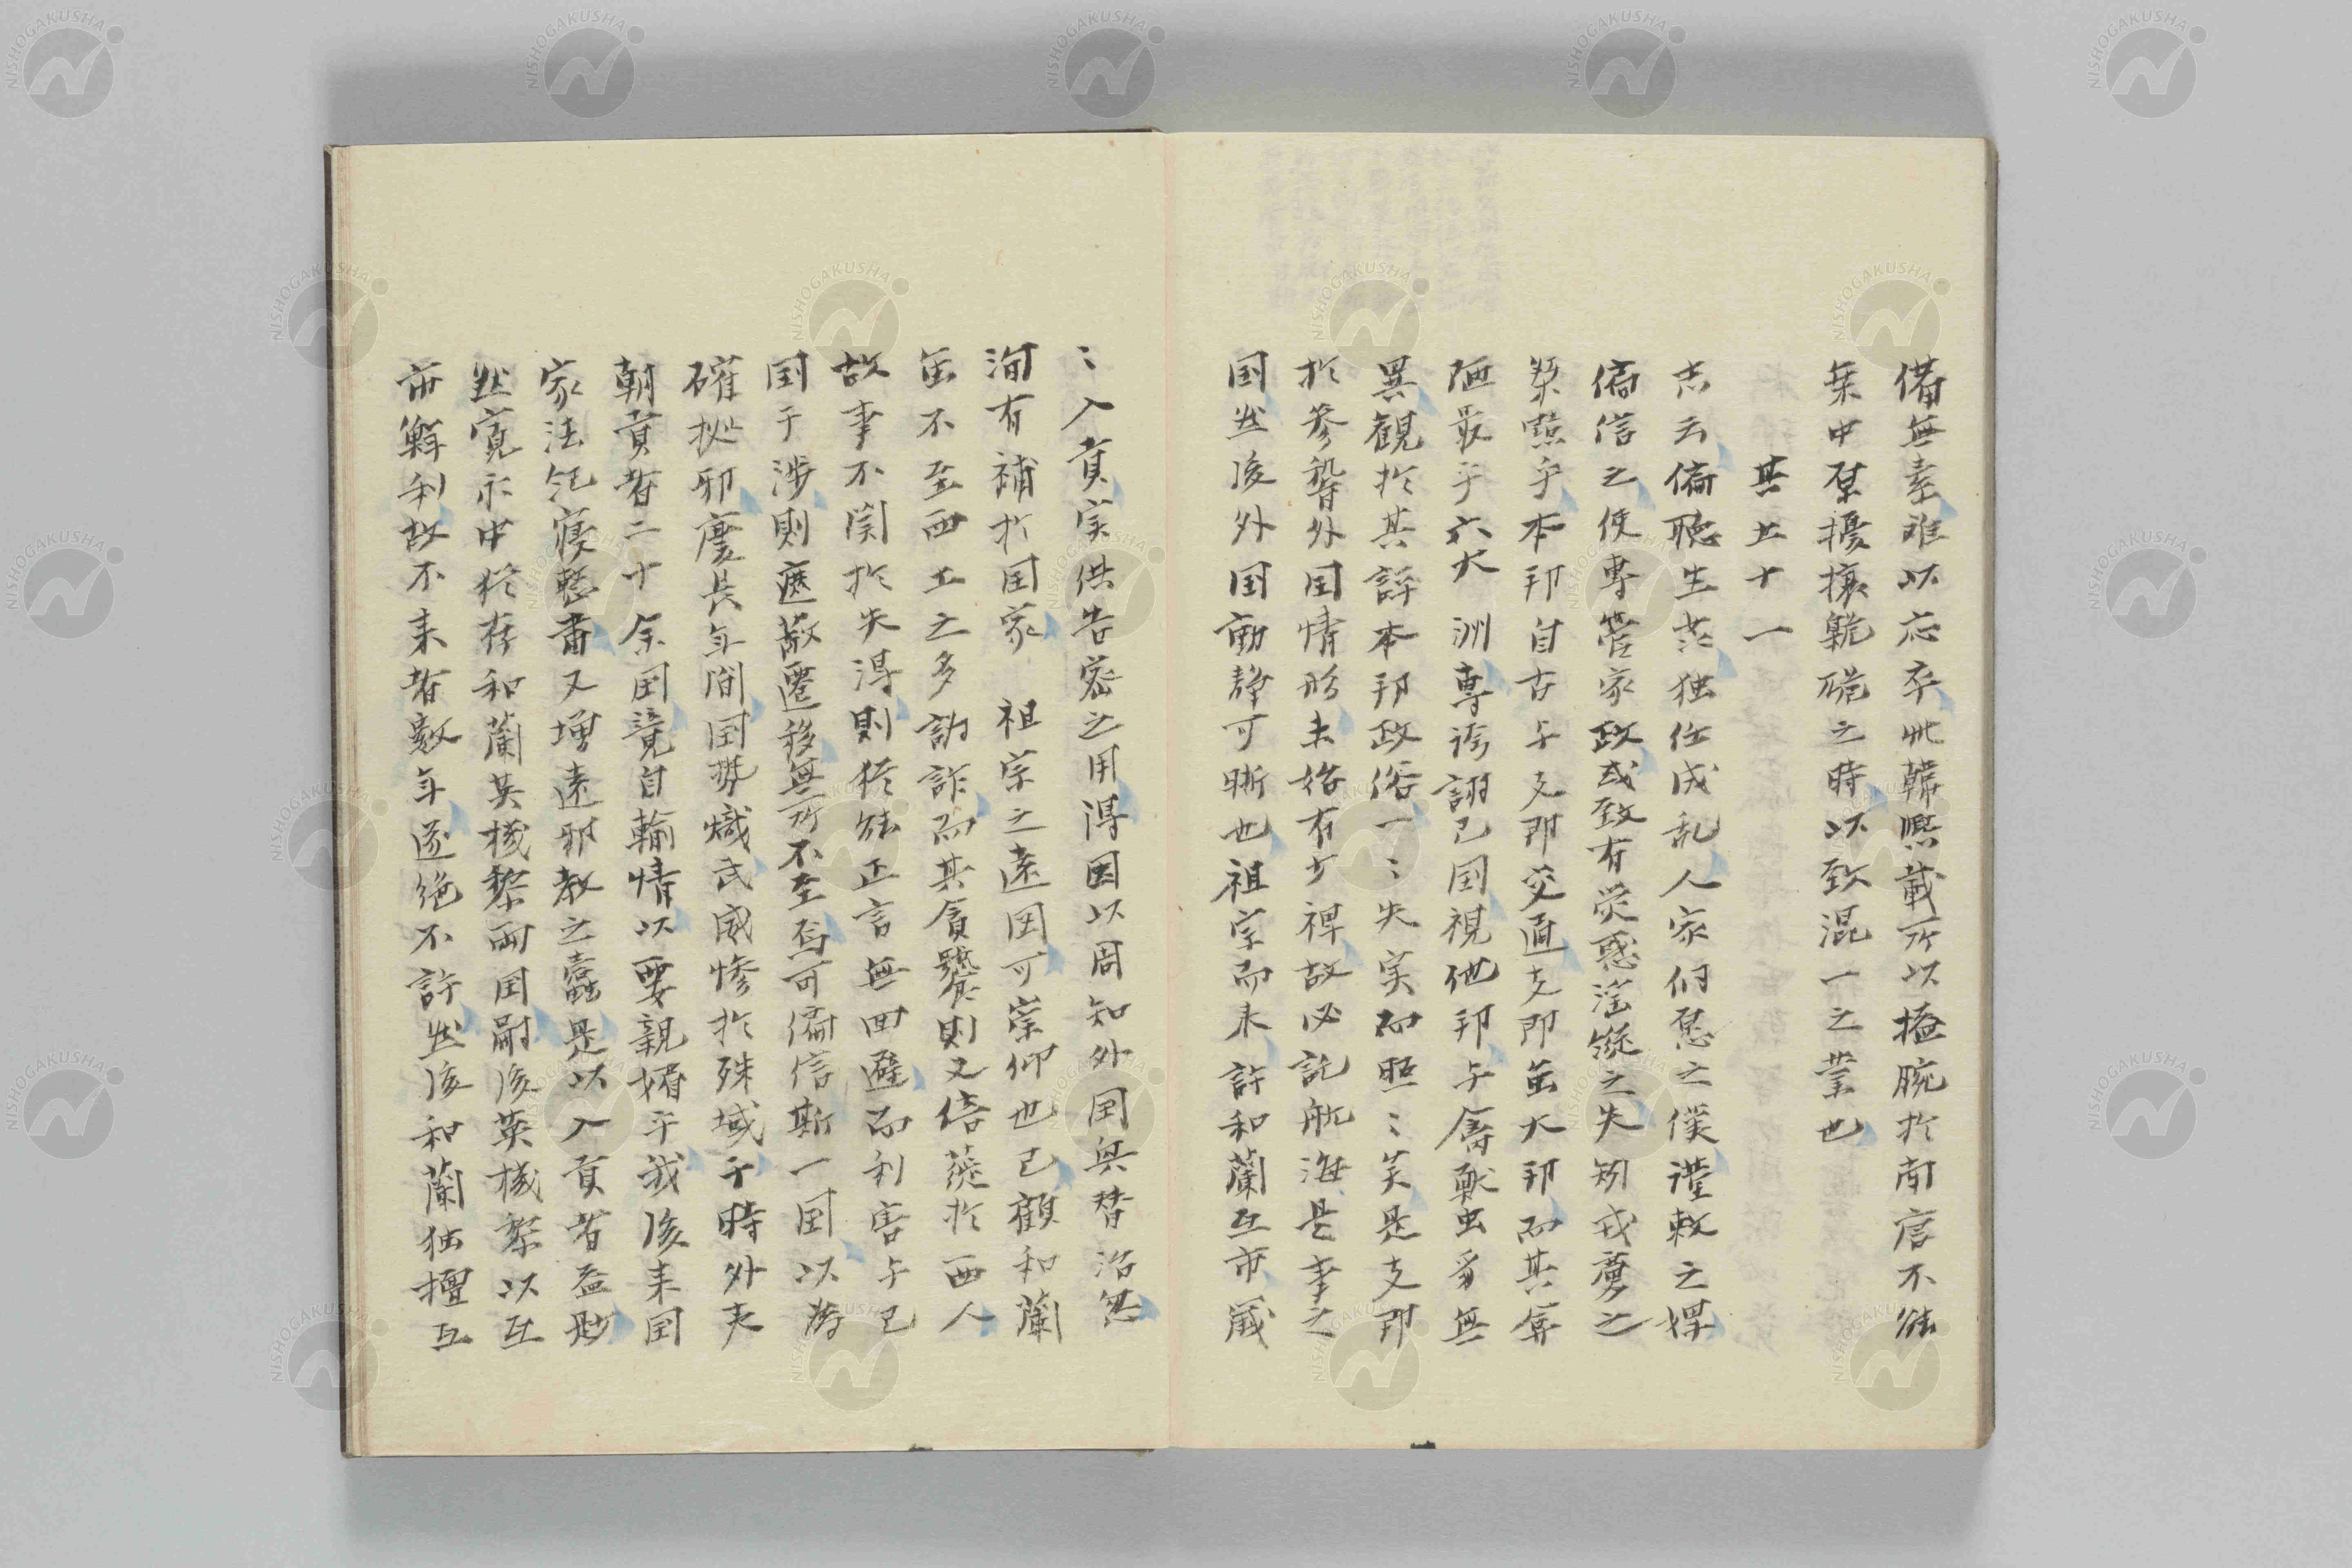 備無素難以応卒此韓熙載所以搤腕於南唐不能
乗中原擾攘䡾硊之時以致混一之業也
其五十一
古云偏聴生茫独任成乱人家们怠之僕謹敕之婢
偏信之使専管家政或致有荧惑淫縦之失矧戎虜之
桀點乎本邦自古与支那交通支那虽大邦而其奪
陋最乎六大洲専誇詡己国視他邦与禽獣虫豸無
異観於其評本邦政俗一〻失実而照〻笑是支那
於参稽外国情形未始有少裨故必託航海是事之
国然後外国動静可晰也祖宗而未許和蘭互市歳
〻入貢実供告密之用得因以周知外国興替治忽
洵有補於国家 祖宗之遠図可崇仰也已顧和蘭
虽不至西土之多詐而其貪饕則又倍蓰於西人
故事不関於失得則猶能正言無回避而利害与己
国干渉則遮蔽遷移無所不至焉可偏信斯一国以為
確抛邪慶長年間国勢熾武威惨於殊域于時外夷
朝貢者二十余国競自輸情以要親媚乎我後来国
家法紀寝整粛又増遠邪教之蠹是以入貢者益尠
然寛永中猶存和蘭英機黎両国嗣後英機黎以互
市鮮利故不来者数年遂絶不許然後和蘭独擅互